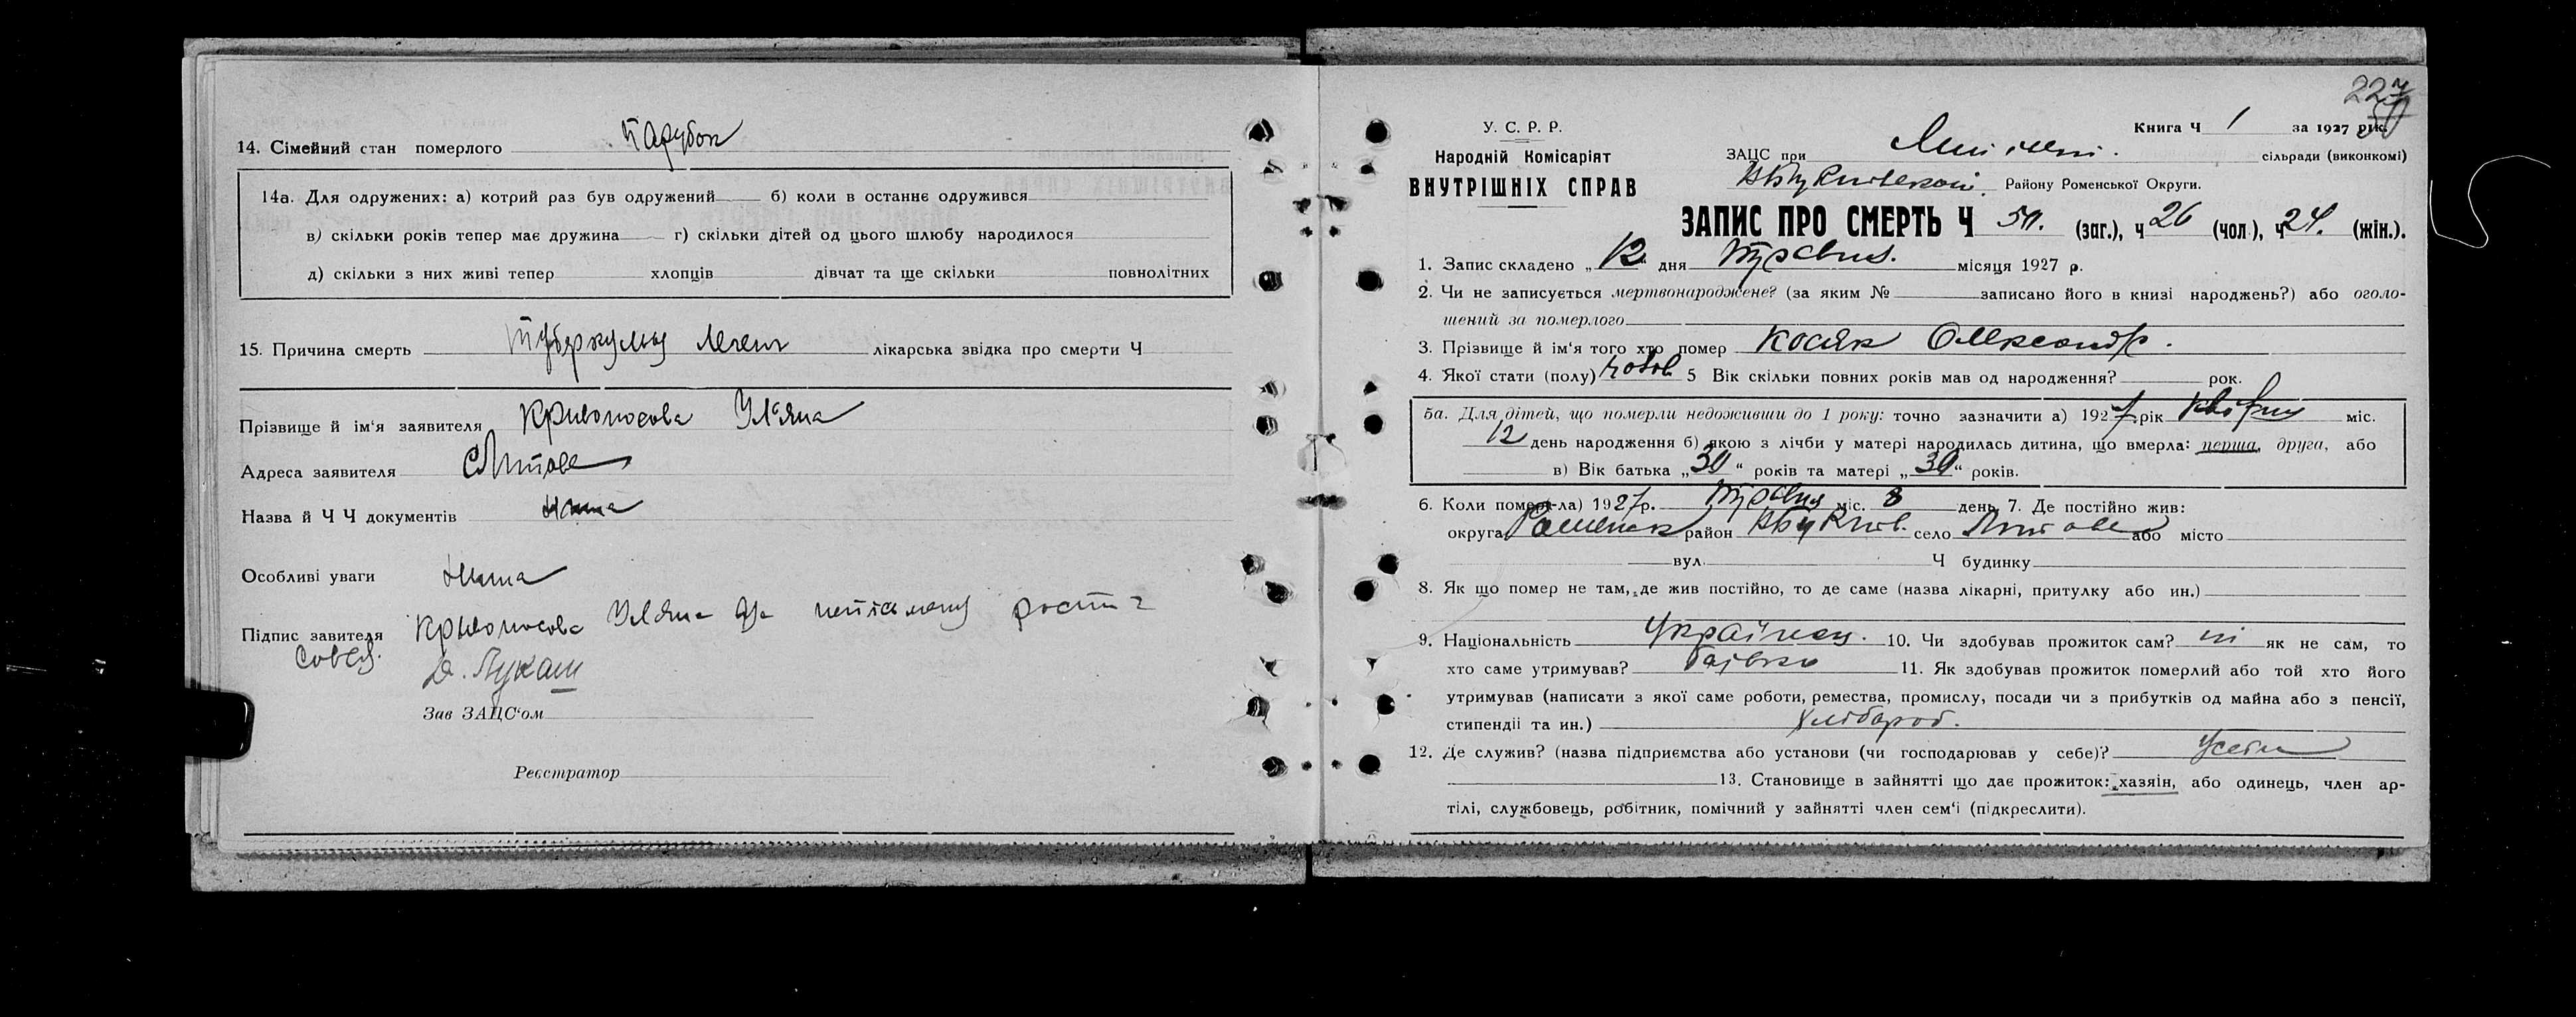 14. Сімейний стан померлого Парубок
14а. Для одружених: а) котрий раз був одружений б) коли в останнє одружився
в) скільки років тепер має дружина г) скільки дітей од цього шлюбу народилося
д) скільки з них живі тепер хлопців дівчат та ще скільки повнолітних
15. Причина смерть Туберкульоз легень лікарська звідка про смерти Ч
Прізвище й ім'я заявителя Кривоносова Уляна
Адреса заявителя
Назва й Ч Ч документів Нима
Особливі уваги Нима
Підпис завителя Кривоносова Уляна
Д. Лукаш
Зав ЗАЦС'ом
Реєстратор
227
У. С. Р. Р.
Народній Комісаріят
ВНУТРІШНІХ СПРАВ
Книга Ч 1 за 1927 рік.
ЗАЦС при сільради (виконкомі)
Району Роменської Округи.
ЗАПИС ПРО СМЕРТЬ Ч 50. (заг.), ч 26 (чол), ч 24. (жін.).
1. Запис складено „12" дня Травня. місяця 1927 р.
2. Чи не записується мертвонароджене? (за яким № записано його в книзі народжень?) або оголо-
шений за померлого
3. Прізвище й ім'я того хто помер Косяк Олександр.
4. Якої стати (полу) 5 Вік скільки повних років мав од народження? рок.
5а. Для дітей, що померли недоживши до 1 року: точно зазначити а) 1927 рік Квітня міс.
12 день народження б) якою з лічби у матері народилась дитина, що вмерла: перша, друга, або
в) Вік батька „30" років та матері „30" років.
6. Коли помер(-ла) 1927 р. Травня міс. 8 день 7. Де постійно жив:
округа Роменськ район село або місто
вул. Ч будинку
8. Як що помер не там, де жив постійно, то де саме (назва лікарні, притулку або ин.)
9. Національність Українец. 10. Чи здобував прожиток сам? ні як не сам, то
хто саме утримував? Батько 11. Як здобував прожиток померлий або той хто його
утримував (написати з якої саме роботи, ремества, промислу, посади чи з прибутків од майна або з пенсії,
стипендії та ин.) Хлібороб.
12. Де служив? (назва підприємства або установи (чи господарював у себе)? Усебе
13. Становище в зайнятті що дає прожиток: хазяін, або одинець, член ар-
тілі, службовець, робітник, помічний у зайнятті член сем'ї (підкреслити).